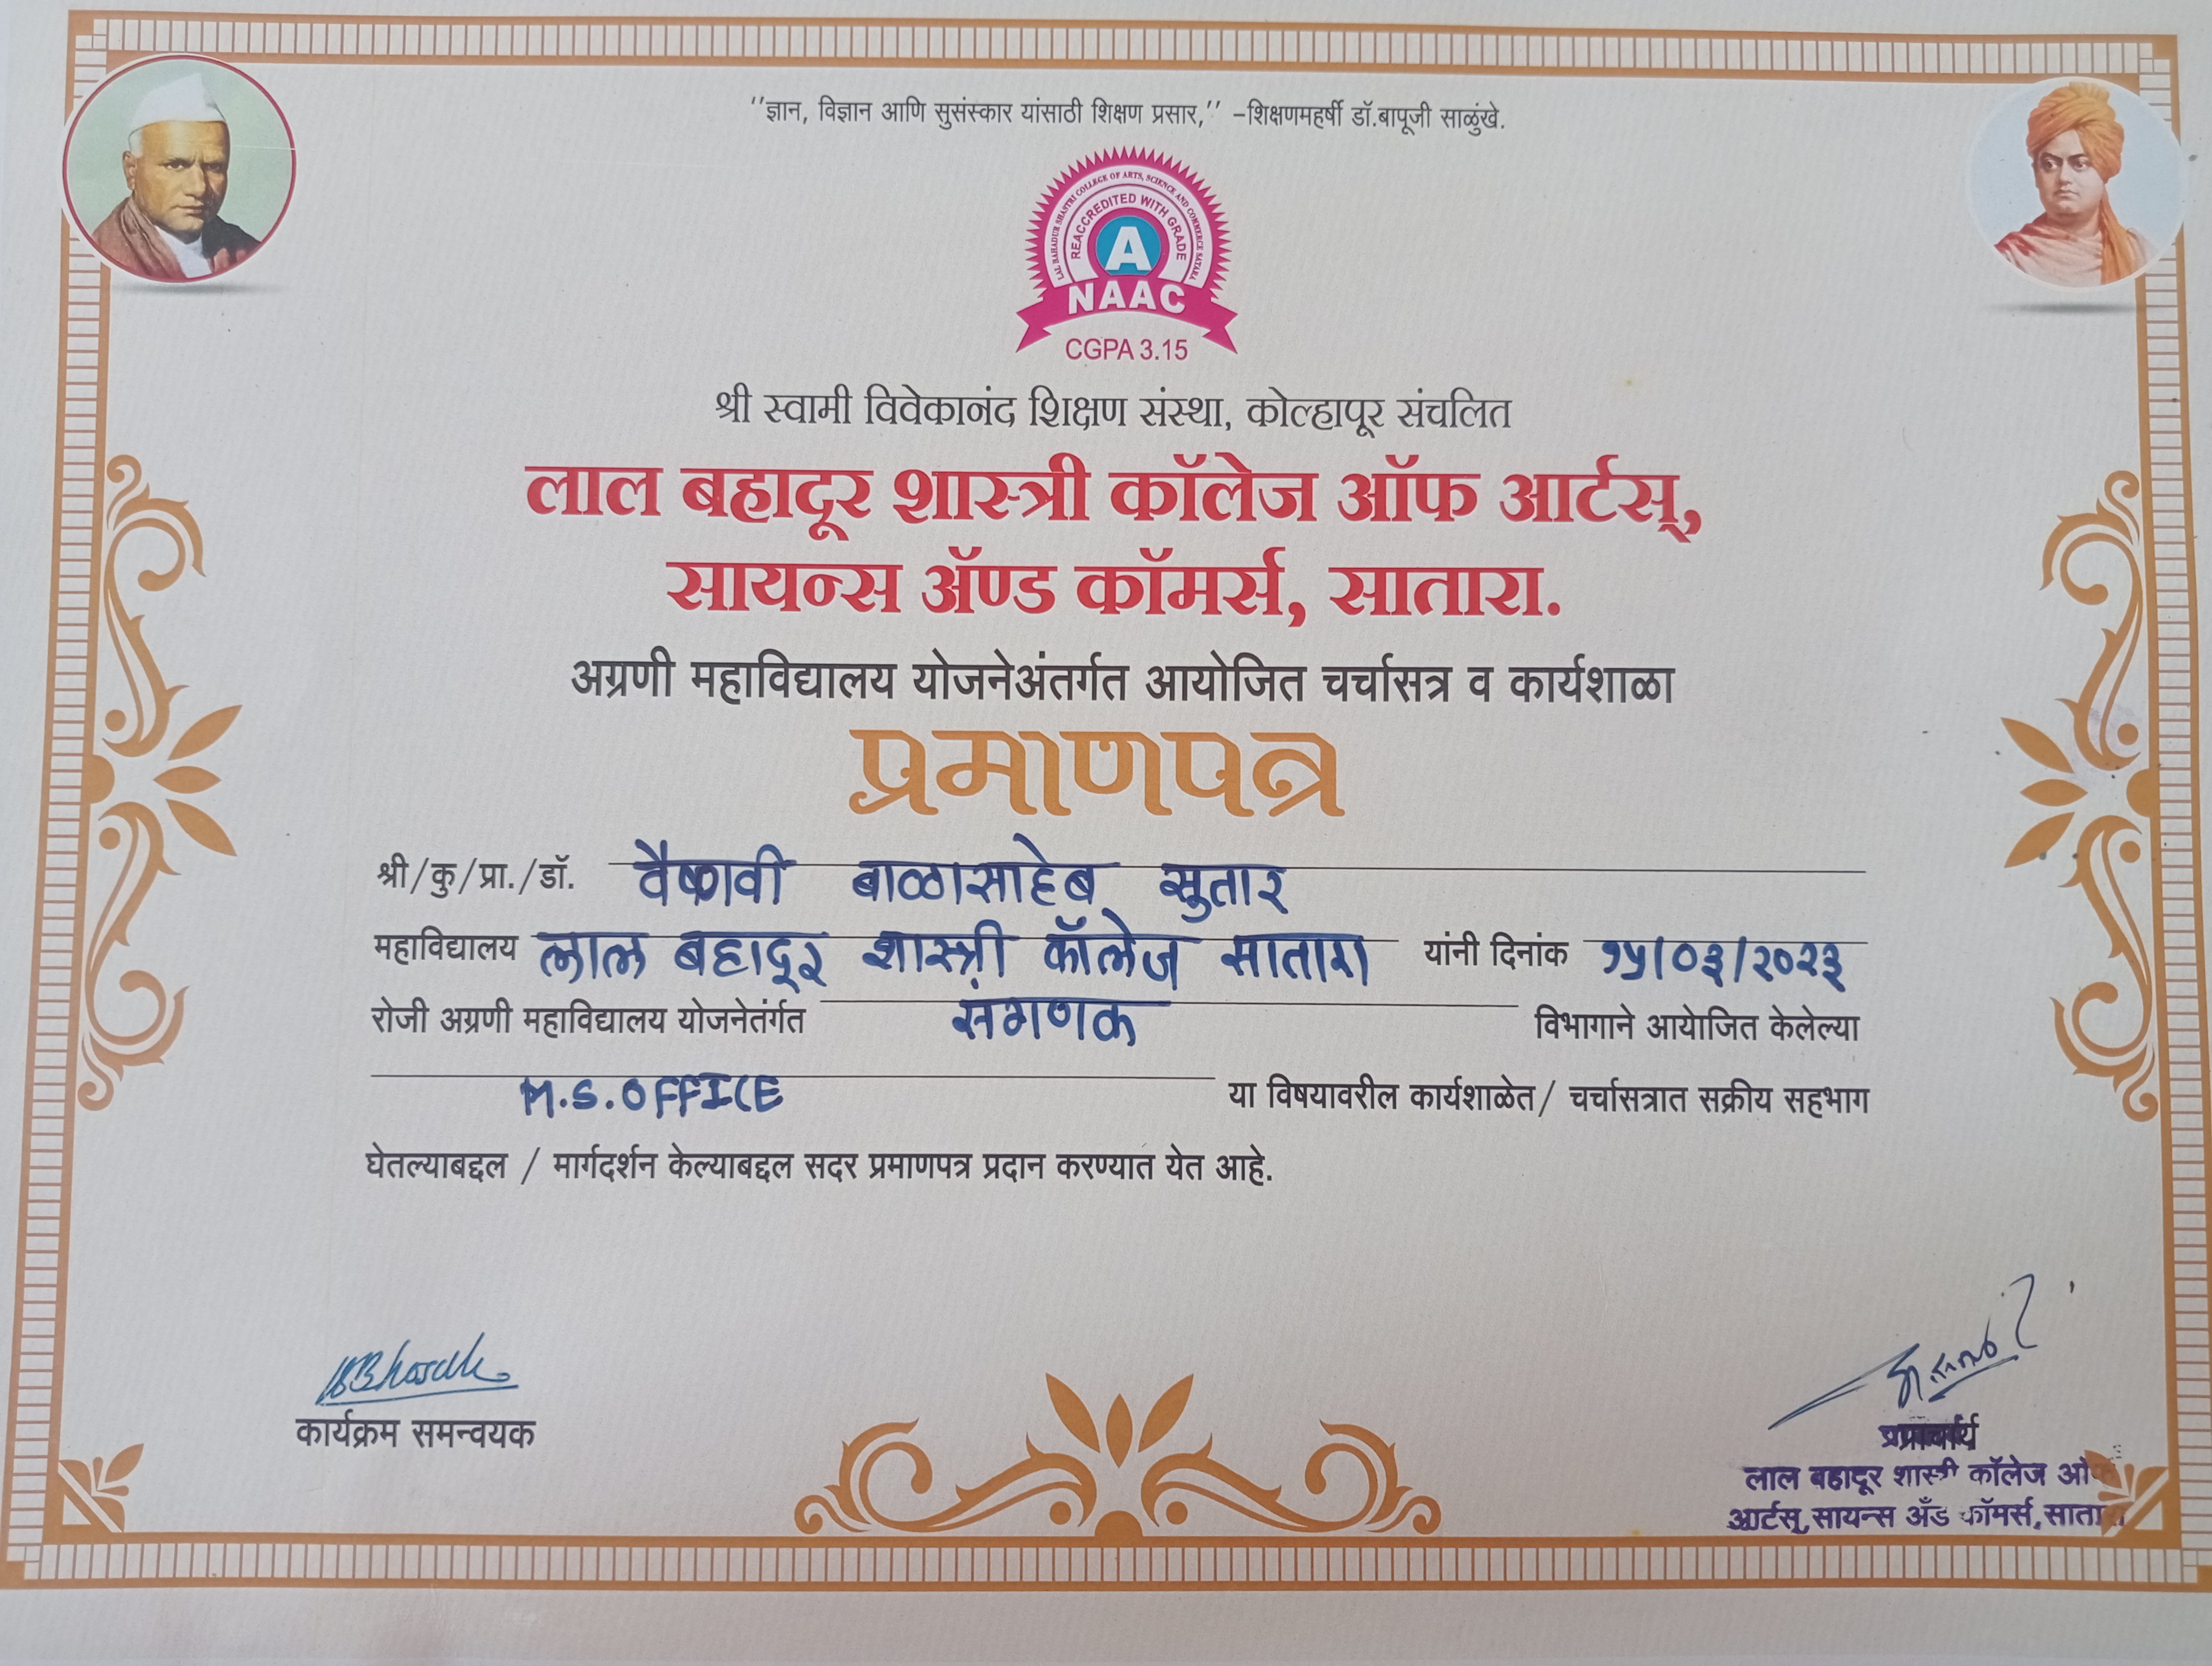 "ज्ञान, विज्ञान आणि सुसंस्कार यांसाठी शिक्षण प्रसार," -शिक्षणमहर्षी डॉ.बापूजी साळुंखे.
LAL BAHADUR SHASTRI COLLEGE OF ARTS, SCIENCE AND COMMERCE SATARA
REACCREDITED WITH GRADE
A
NAAC
CGPA 3.15
श्री स्वामी विवेकानंद शिक्षण संस्था, कोल्हापूर संचलित
लाल बहादूर शास्त्री कॉलेज ऑफ आर्टस्,
सायन्स ॲण्ड कॉमर्स, सातारा.
अग्रणी महाविद्यालय योजनेअंतर्गत आयोजित चर्चासत्र व कार्यशाळा
प्रमाणपत्र
श्री/कु/प्रा./डॉ. वैष्णवी बाळासाहेब सुतार
महाविद्यालय लाल बहादूर शास्त्री कॉलेज सातारा यांनी दिनांक १५/०३/२०२३
रोजी अग्रणी महाविद्यालय योजनेतंर्गत संगणक विभागाने आयोजित केलेल्या
M.S.OFFICE या विषयावरील कार्यशाळेत/ चर्चासत्रात सक्रीय सहभाग
घेतल्याबद्दल / मार्गदर्शन केल्याबद्दल सदर प्रमाणपत्र प्रदान करण्यात येत आहे.
कार्यक्रम समन्वयक
प्राचार्य
लाल बहादूर शास्त्री कॉलेज ऑफ
आर्टस्,सायन्स अँड कॉमर्स,सातारा